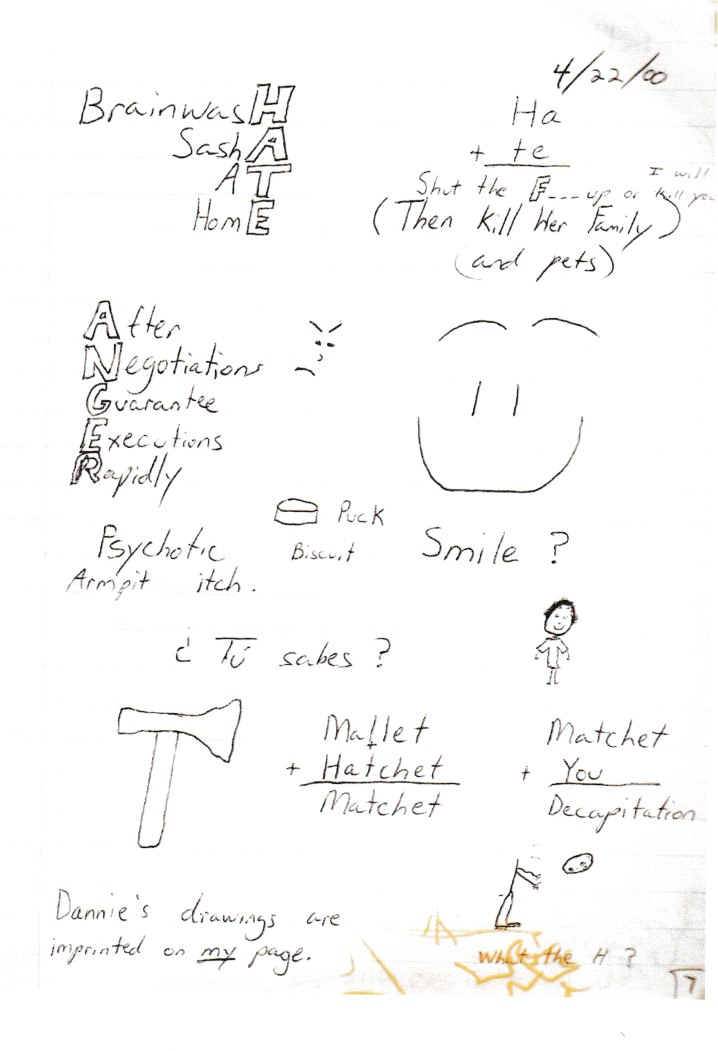 4/22/00
BrainwasH
SashA
AT
HomE
Ha
+ te
Shut the F___ up or I will kill you
(Then Kill Her Family)
(and pets)
After
Negotiations
Guarantee
Executions
Rapidly
Puck
Biscuit
Psychotic
Armpit itch.
Smile ?
¿ Tú sabes ?
Mallet
+ Hatchet
Matchet
Matchet
+ You
Decapitation
Dannie's drawings are
imprinted on my page.
What the H ?
7